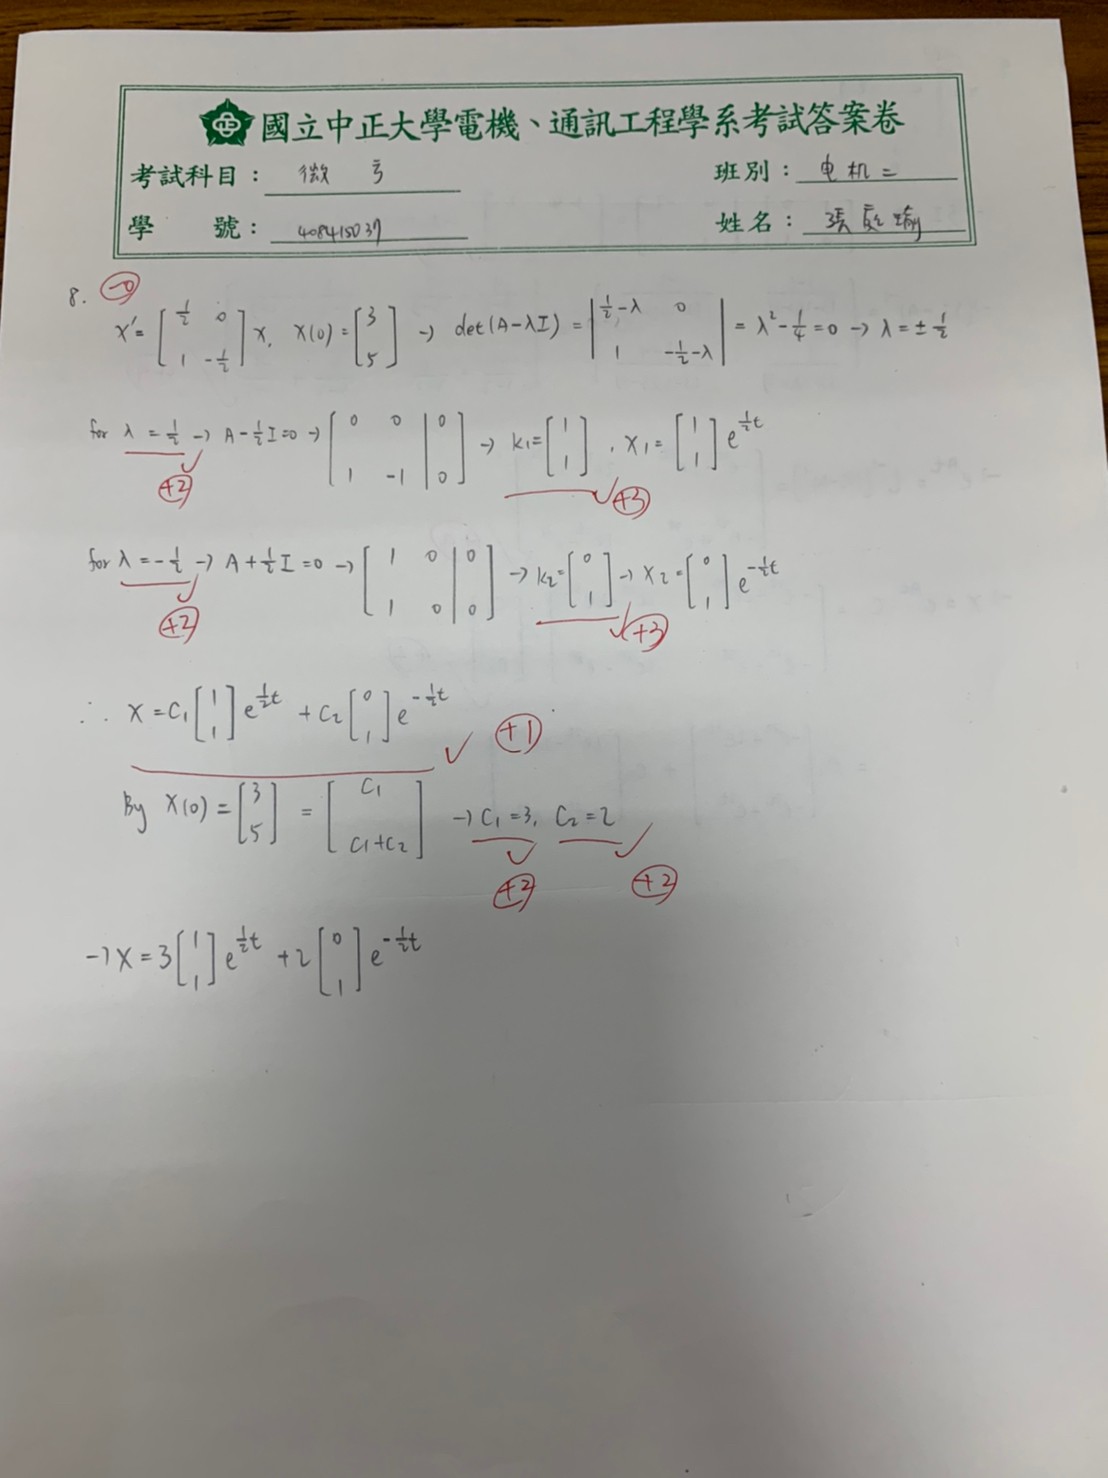 國立中正大學電機、通訊工程學系考試答案卷
考試科目： 微 方 班別： 电机二
學 號： 408415037 姓名： 張 瑜
8. -0
X' = [1/2 0; 1 -1/2] X, X(0) = [3; 5] → det(A-λI) = |1/2-λ 0; 1 -1/2-λ| = λ² - 1/4 = 0 → λ = ± 1/2
for λ = 1/2 → A - 1/2 I = 0 → [0 0 | 0; 1 -1 | 0] → k₁ = [1; 1], X₁ = [1; 1] e^{1/2 t}
+2 +3
for λ = -1/2 → A + 1/2 I = 0 → [1 0 | 0; 1 0 | 0] → k₂ = [0; 1] → X₂ = [0; 1] e^{-1/2 t}
+2 +3
∴ X = C₁ [1; 1] e^{1/2 t} + C₂ [0; 1] e^{-1/2 t}
+1
By X(0) = [3; 5] = [C₁; C₁+C₂] → C₁ = 3, C₂ = 2
+2 +2
→ X = 3 [1; 1] e^{1/2 t} + 2 [0; 1] e^{-1/2 t}